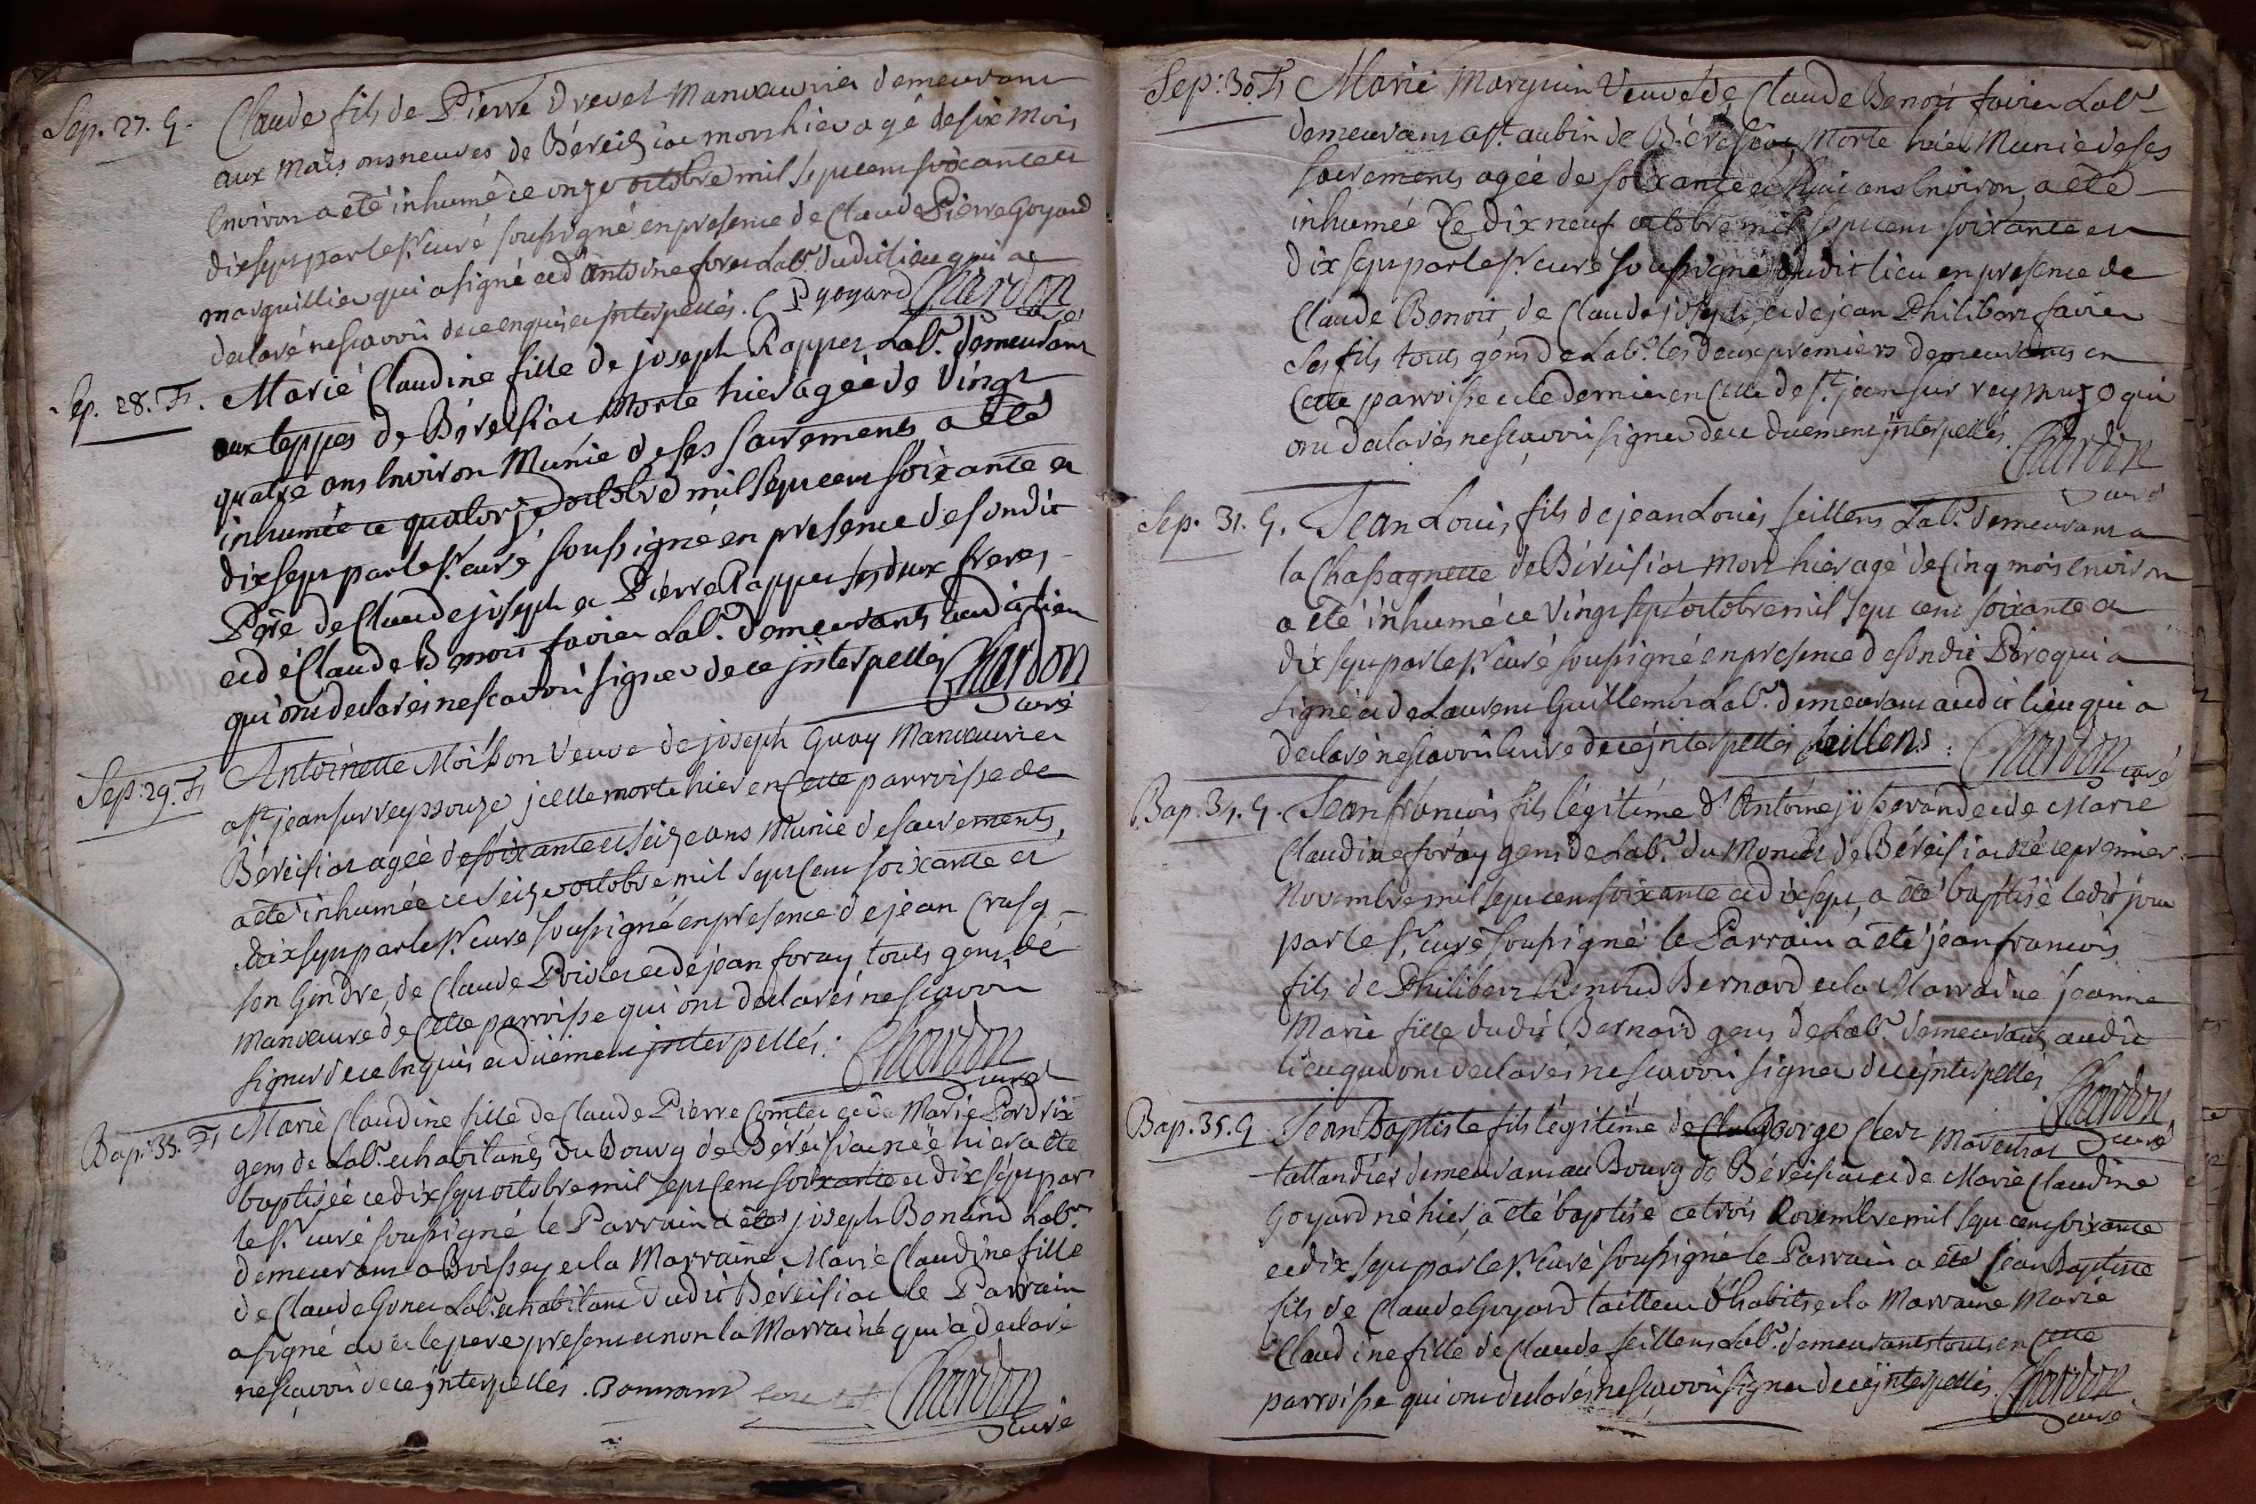 Sep. 27. G. Claude fils de Pierre drevet Manvouvrier demeurant
aux Maisons neuves de Béreiziat mort hier agé de six Mois
Environ a été inhumé ce onze octobre mil sept cent soixante et
dix sept par le sr. curé soussigné en presence de Claude Pierre Goyard
marguillier qui a signé et d'Antoine foray Labr. dudit lieu qui a
declaré ne scavoir de ce enquis et interpellés. C P goyard Chardon
curé
Sep. 28. F. Marie Claudine fille de joseph Rapper Labr. demeurant
aux teppes de Béreisiat Morte hier agée de vingt
quatre ans Environ Munie de ses Sacrements a été
inhumée ce quatorze octobre mil sept cent soixante et
dix sept par le sr. curé soussigné en presence de sondit
Pere de Claude joseph et Pierre Rapper ses deux freres
et de Claude Benoit favier Labr. demeurants audit lieu
qui ont declarés ne scavoir signer de ce interpellés Chardon
curé
Sep. 29. F. Antoinette Moisson Veuve de joseph Guay Manvouvrier
a st jean sur veyssouze icelle morte hier en Cette parroisse de
Béreisiat agée de soixante et seize ans Munie de sacrements,
a été inhumée ce seize octobre mil sept Cent soixante et
dix sept par le sr. curé soussigné en presence de jean Crasq
son Gendre, de Claude Poivier et de jean foray touts gens de
Manœuvre de Cette parroisse qui ont declarés ne scavoir
signer de ce Enquis et düement interpellés. Chardon
curé
Bap. 33. F. Marie Claudine fille de Claude Pierre Comtet et de Marie Perdrix
gens de Labr. et habitants du Bourg de Béréisiat née hier a été
baptisée ce dix sept octobre mil sept Cent soixante et dix sept par
le sr. curé soussigné le Parrain a été joseph Bonand Labr.
demeurant a Boissey et la Marraine Marie Claudine fille
de Claude Gonet Labr. et habitant dudit Béreisiat le Parrain
a signé avec le pere present et non la Marraine qui a declaré
ne scavoir de ce interpellés. Bonnant Chardon
curé
Sep. 30. F. Marie Marguin Veuve de Claude Benoit favier Labr.
demeurant a st. aubin de Béreisiat Morte hier Munie de ses
sacrements agée de soixante et huit ans Environ a été
inhumée Ce dix neuf octobre mil sept cent soixante et
dix sept par le sr. curé soussigné dudit lieu en presence de
Claude Benoit, de Claude joseph, et de jean Philibert favier
ses fils touts gens de Labr. les deux premiers demeurants en
Cette parroisse et le dernier en Celle de st. jean sur reyssuze qui
ont declarés ne scavoir signer de ce düement interpellés. Chardon
curé
Sep. 31. G. Jean Louis fils de jean Louis seillens Labr. demeurant a
la Chassagnette de Béreisiat Mort hier agé de Cinq mois environ
a été inhumé ce vingt sept octobre mil sept cent soixante et
dix sept par le sr. curé soussigné en presence de sondit Pere qui a
signé et de Laurent Guillemot Labr. demeurant audit lieu qui a
declaré ne scavoir Ecrire de ce interpellés seillens. Chardon
curé
Bap. 34. G. Jean francois fils légitime d'Antoine josserand et de Marie
Claudine foray gens de Labr. du Moncel de Béreisiat né ce premier
Novembre mil sept cent soixante et dix sept, a été baptisé ledit jour
par le sr. curé soussigné le Parrain a été jean francois
fils de Philibert Renaud Bernard et la Marraine jeanne
Marie fille dudit Bernard gens de Labr. demeurants audit
lieu qui ont declarés ne scavoir signer de ce interpellés Chardon
curé
Bap. 35. G. Jean Baptiste fils légitime de George Clerc Marechal
tallandier demeurant au Bourg de Béreisiat et de Marie Claudine
Goyard né hier a été baptisé ce trois Novembre mil sept cent soixante
et dix sept par le sr. curé soussigné le Parrain a été jean Baptiste
fils de Claude Goyard tailleur d'habits et la Marraine Marie
Claudine fille de Claude seillens Labr. demeurants touts en Cette
parroisse qui ont declarés ne scavoir signer de ce interpellés Chardon
curé